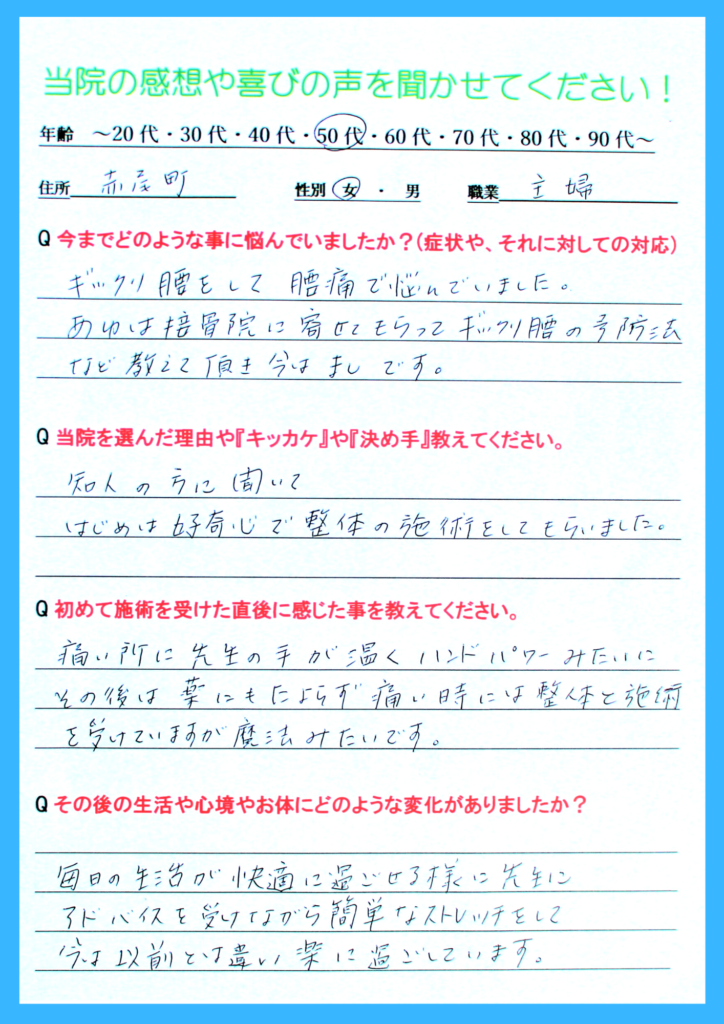 当院の感想や喜びの声を聞かせてください！
年齢 ～20代・30代・40代・50代・60代・70代・80代・90代～
住所 赤尾町 性別 女 ・ 男 職業 主婦
Q 今までどのような事に悩んでいましたか？（症状や、それに対しての対応）
ギックリ腰をして 腰痛で悩んでいました。
あゆは接骨院に寄せてもらってギックリ腰の予防法
など教えて頂き今はましです。
Q 当院を選んだ理由や『キッカケ』や『決め手』教えてください。
知人の方に聞いて
はじめは好奇心で整体の施術をしてもらいました。
Q 初めて施術を受けた直後に感じた事を教えてください。
痛い所に先生の手が温くハンドパワーみたいに
その後は薬にもたよらず痛い時には整体と施術
を受けていますが魔法みたいです。
Q その後の生活や心境やお体にどのような変化がありましたか？
毎日の生活が快適に過ごせる様に先生に
アドバイスを受けながら簡単なストレッチをして
今は以前とは違い楽に過ごしています。